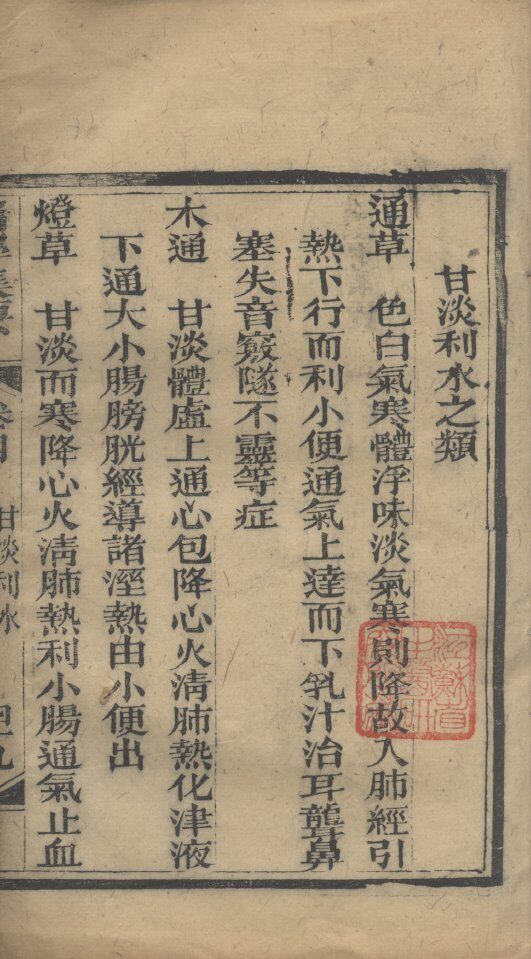 甘淡利水之類
通草　色白氣寒體浮味淡氣寒則降故入肺經引
熱下行而利小便通氣上達而下乳汁治耳聾鼻
塞失音竅隧不靈等症
木通　甘淡體虛上通心包降心火淸肺熱化津液
下通大小腸膀胱經導諸溼熱由小便出
燈草　甘淡而寒降心火淸肺熱利小腸通氣止血
甘淡利水